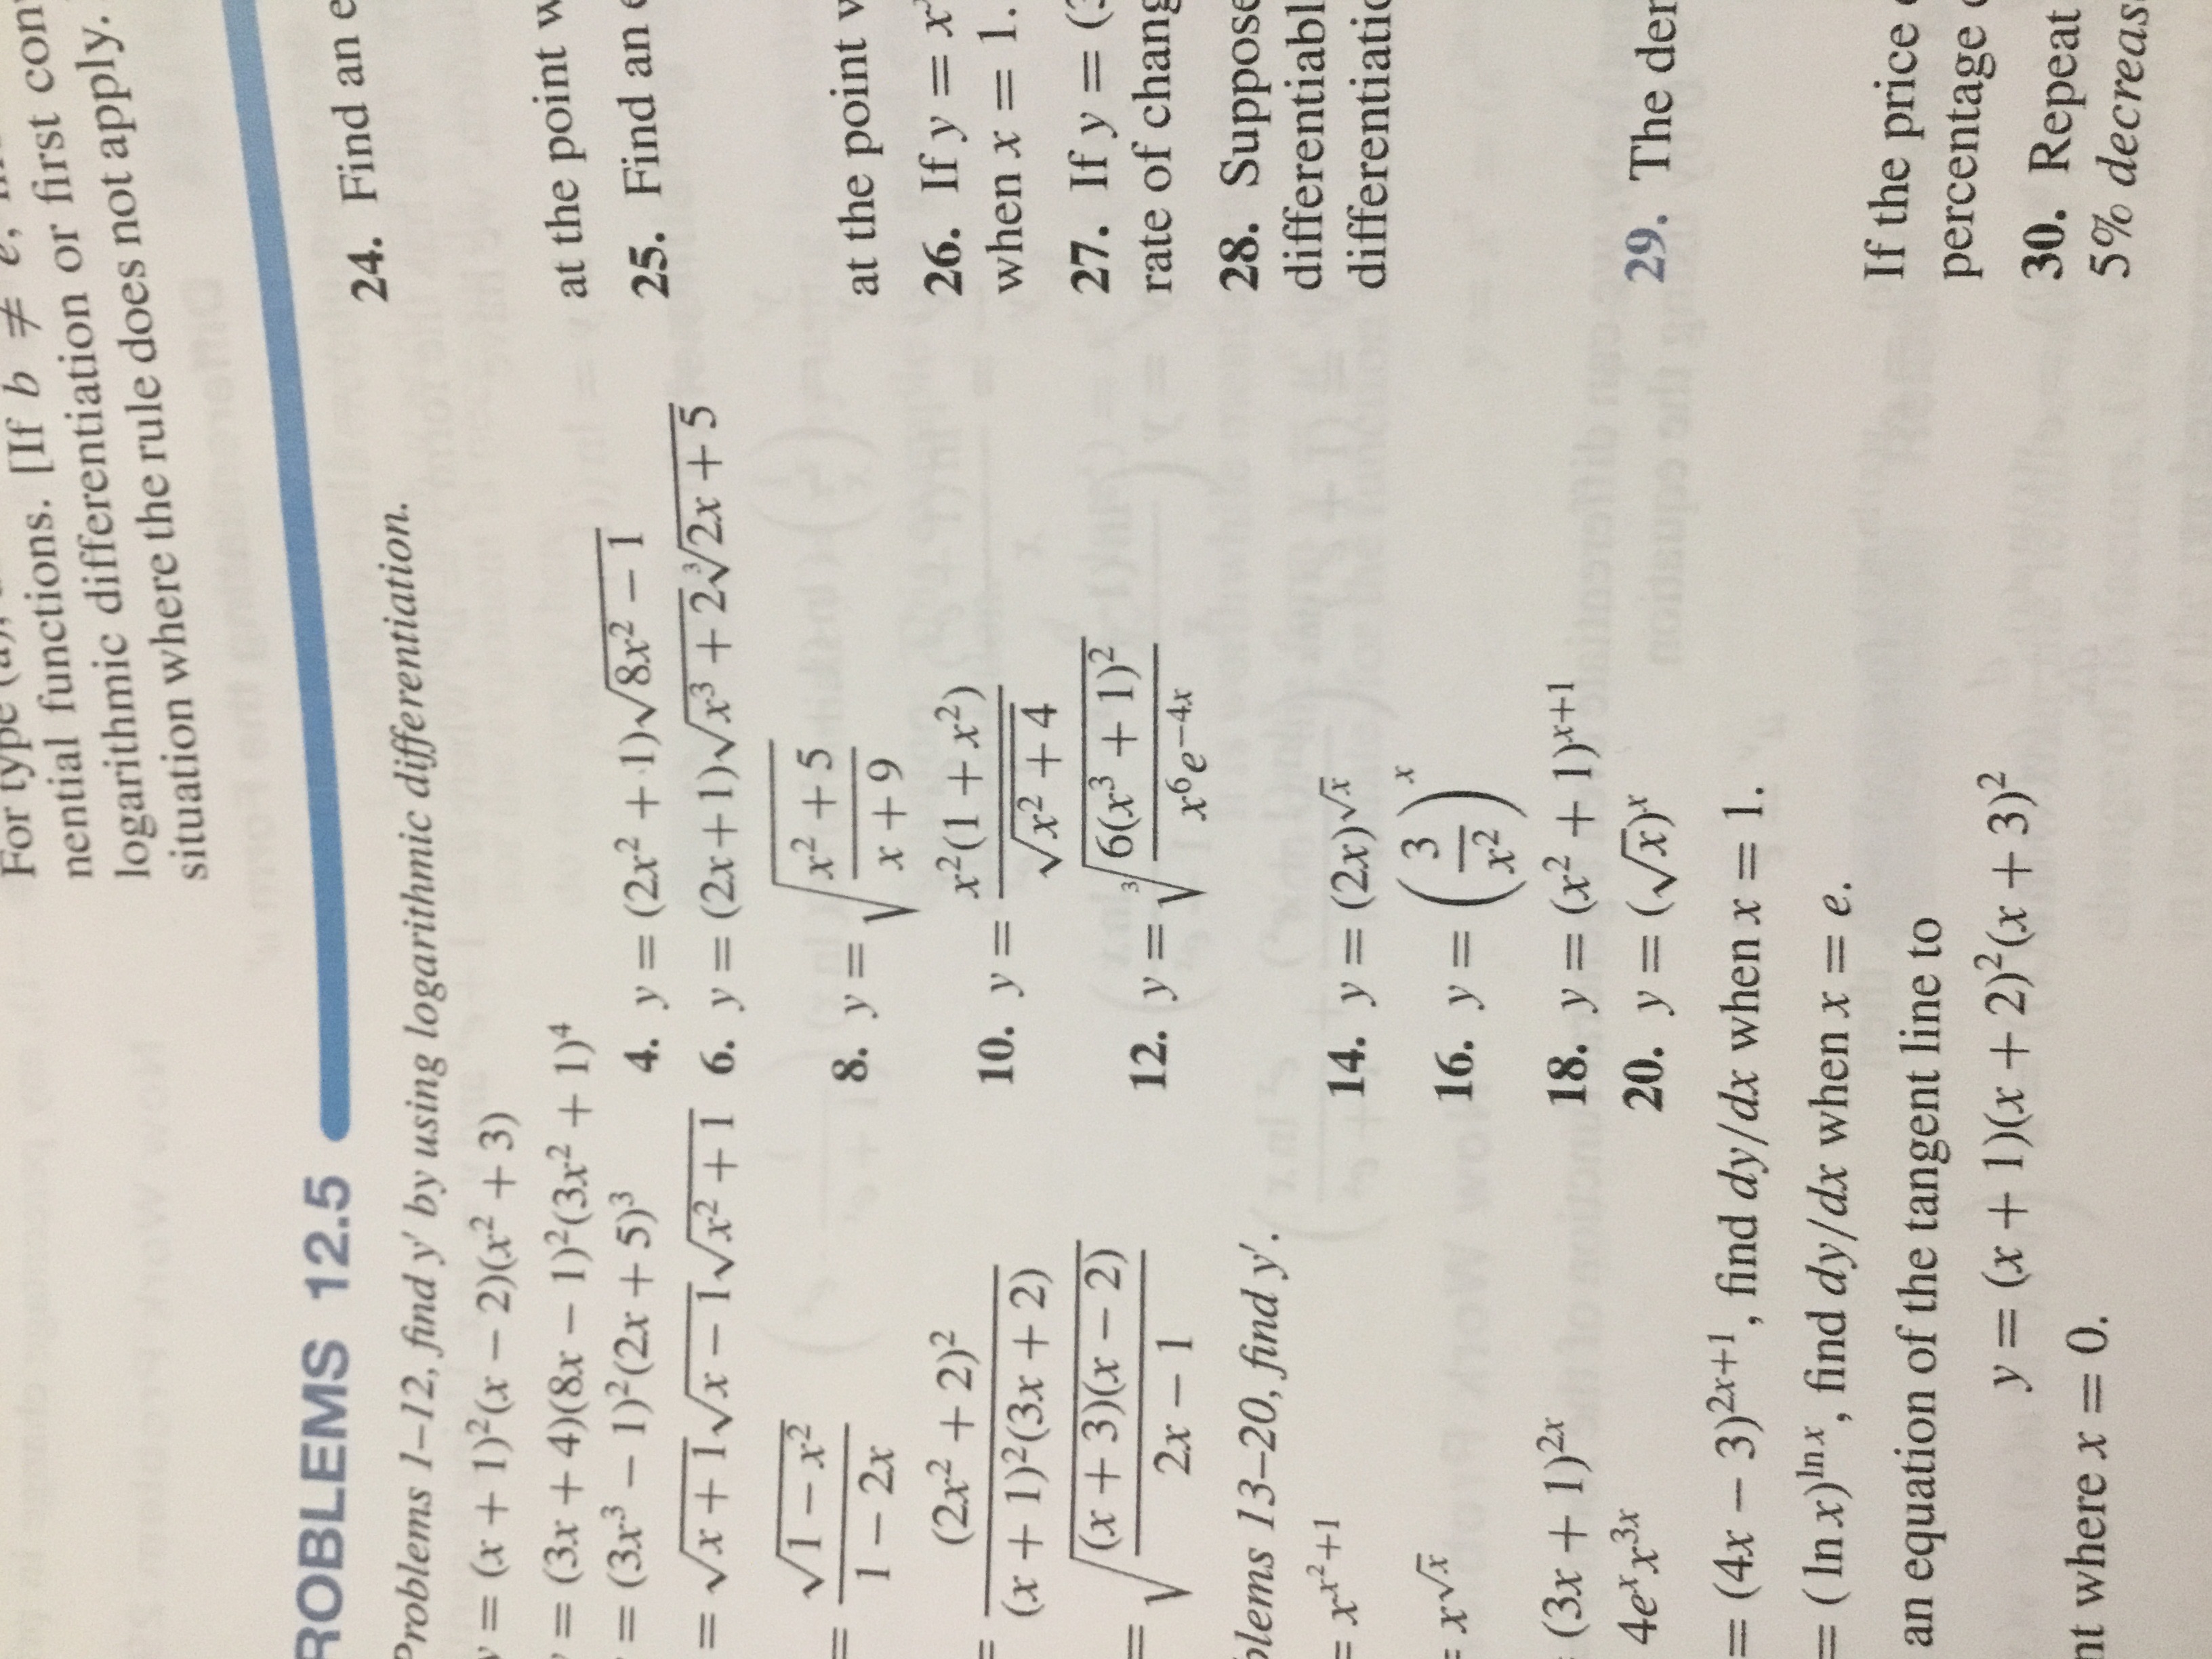 For type
nential functions. [If b ≠ e,
logarithmic differentiation or first con
situation where the rule does not apply.
ROBLEMS 12.5
Problems 1–12, find y′ by using logarithmic differentiation.
y = (x + 1)²(x − 2)(x² + 3)
= (3x + 4)(8x − 1)²(3x² + 1)⁴
= (3x³ − 1)²(2x + 5)³
4. y = (2x² + 1)√(8x² − 1)
= √(x + 1)√(x − 1)√(x² + 1)
6. y = (2x + 1)√(x³ + 2)∛(2x + 5)
= √(1 − x²)/(1 − 2x)
8. y = √((x² + 5)/(x + 9))
= (2x² + 2)²/((x + 1)²(3x + 2))
10. y = x²(1 + x²)/√(x² + 4)
= √((x + 3)(x − 2)/(2x − 1))
12. y = ∛(6(x³ + 1)²/(x⁶e^(−4x)))
blems 13–20, find y′.
= x^(x²+1)
14. y = (2x)^√x
= x^√x
16. y = (3/x²)^x
(3x + 1)^(2x)
18. y = (x² + 1)^(x+1)
4e^x x^(3x)
20. y = (√x)^x
= (4x − 3)^(2x+1), find dy/dx when x = 1.
= (ln x)^(ln x), find dy/dx when x = e.
an equation of the tangent line to
y = (x + 1)(x + 2)²(x + 3)²
nt where x = 0.
24. Find an e
at the point w
25. Find an e
at the point
26. If y = x
when x = 1.
27. If y = (3
rate of chang
28. Suppose
differentiabl
differentiatio
29. The der
If the price
percentage
30. Repeat
5% decreas